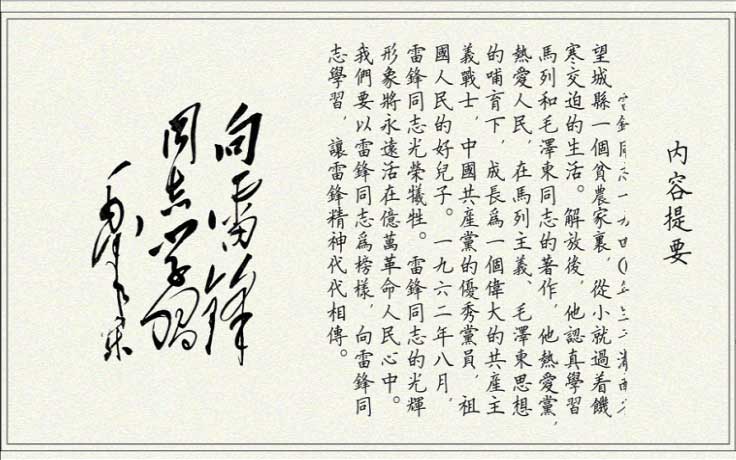 内容提要
望城縣一個貧農家裏，從小就過着饑
寒交迫的生活。解放後，他認真學習
馬列和毛澤東同志的著作，他熱愛黨，
熱愛人民，在馬列主義、毛澤東思想
的哺育下，成長爲一個偉大的共産主
義戰士，中國共産黨的優秀黨員，祖
國人民的好兒子。一九六二年八月，
雷鋒同志光榮犧牲。雷鋒同志的光輝
形象將永遠活在億萬革命人民心中。
我們要以雷鋒同志爲榜樣，向雷鋒同
志學習，讓雷鋒精神代代相傳。
向雷锋
同志学习
毛泽东